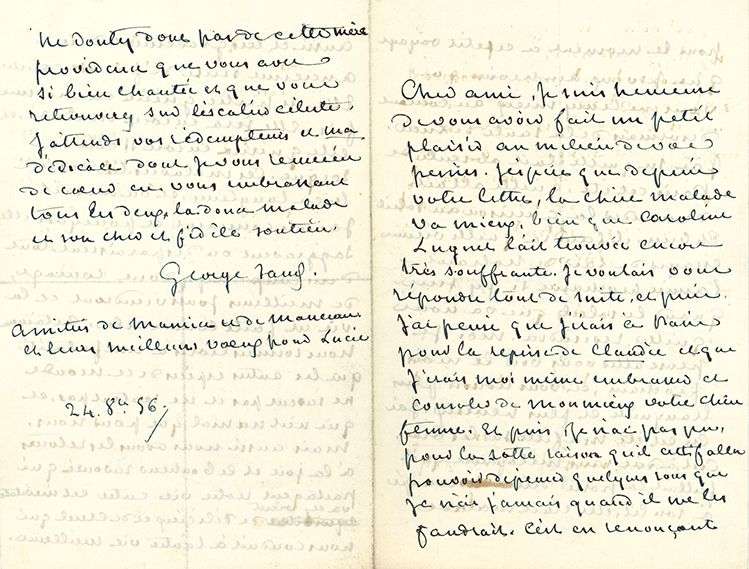 Cher ami, je suis heureuse
de vous avoir fait un petit
plaisir au milieu de vos
peines. J'espère que depuis
votre lettre, la chère malade
va mieux, bien que Caroline
Luguet l'ait trouvée encore
très souffrante. Je voulais vous
répondre tout de suite, et puis
j'ai pensé que j'irais à Paris
pour la reprise de Claudie et que
j'irais moi même embrasser et
consoler de mon mieux votre chère
femme. Et puis, je n'ai pas pu,
pour la sotte raison qu'il eut fallu
pouvoir dépenser quelques sous que
je n'ai jamais quand il me les
faudrait. C'est en renonçant
Ne doutez donc pas de cette
providence que vous avez
si bien chantée et que vous
retrouverez sur l'escalier céleste.
J'attends vos rédempteurs et ma
dédicace dont je vous remercie
de cœur en vous embrassant
tous les deux, la douce malade
et son cher et fidèle soutien.
George Sand.
Amitiés de Maurice et de Manceau
et leurs meilleurs vœux pour Lucie
24. 8bre 56.